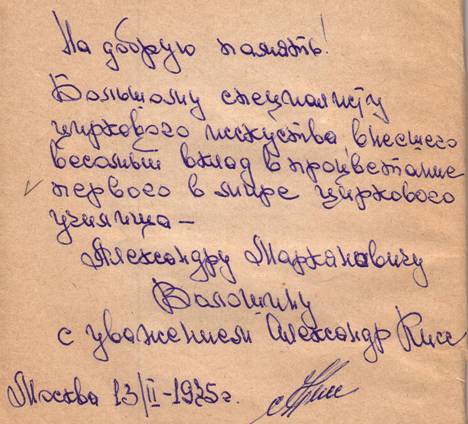 На добрую память!
Большому специалисту
циркового искуства внесшего
весомый вклад в процветание
первого в мире циркового
училища –
Александру Маркяновичу
Волошину
с уважением Александр Кисс
Москва 13/II-1975г.